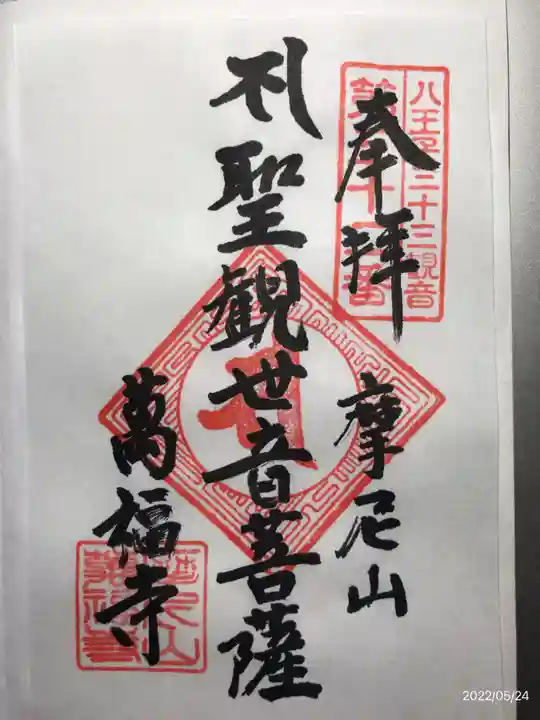 八王子三十三観音
奉拝
摩尼山
札聖観世音菩薩
萬福寺
2022/05/24